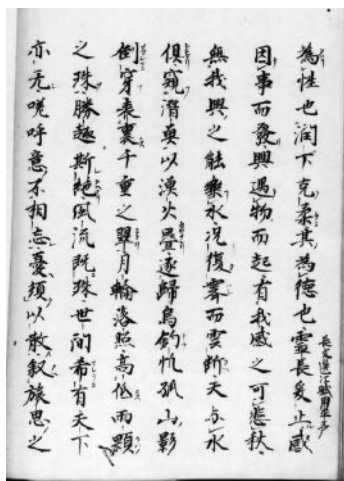 為性也潤下克柔其為德也靈長爰止感
因事而發興遇物而起有我感之可悲秋
無我興之能樂水况復霽而雲斷天与水
俱窺潛奠以漢火疊遂歸鳥鈎帆孤山影
倒穿表裏千重之翠月輪落照高低兩顆
之珠勝趣斯絕風流既殊世間希有天下
亦无嗟呼意不相忘憂須以散叙旅思之